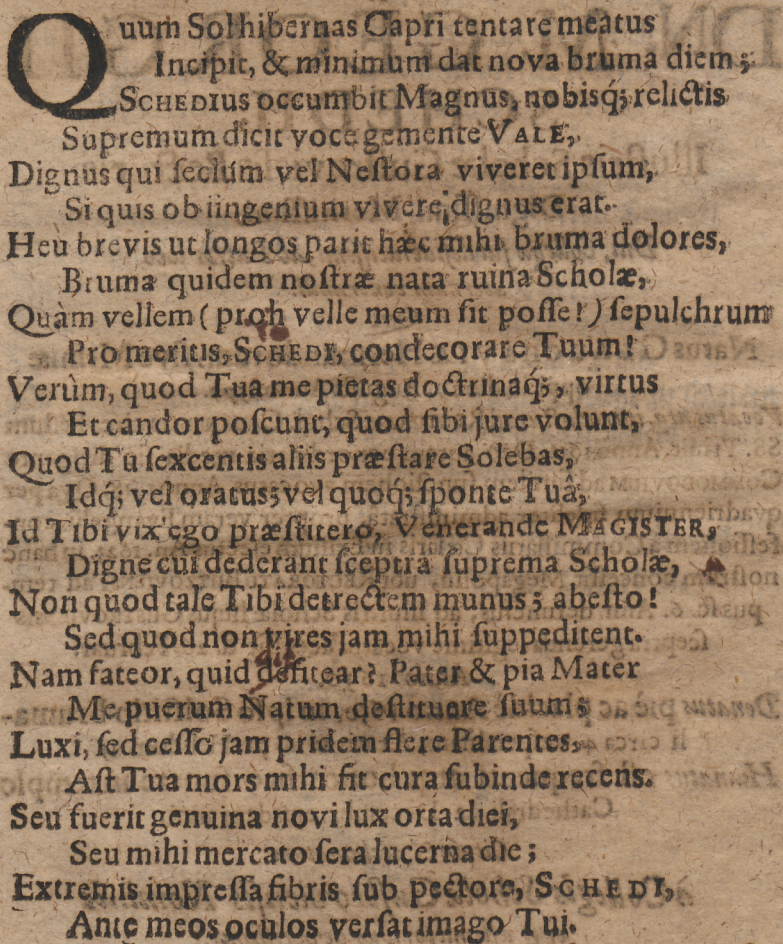 Quum Sol hibernas Capri tentare meatus
Incipit, & minimum dat nova bruma diem;
SCHEDIUS occumbit Magnus, nobisq́; relictis
Supremum dicit voce gemente VALE,
Dignus qui seclûm vel Nestora viveret ipsum,
Si quis ob iingenium vivere dignus erat.
Heu brevis ut longos parit hæc mihi bruma dolores,
Bruma quidem nostræ nata ruina Scholæ,
Quàm vellem (proh velle meum sit posse!) sepulchrum
Pro meritis, SCHEDI, condecorare Tuum!
Verùm, quod Tua me pietas doctrinaq́;, virtus
Et candor poscunt, quod sibi jure volunt,
Quod Tu sexcentis aliis præstare Solebas,
Idq́; vel oratus; vel quoq́; sponte Tuâ,
Id Tibi vix ego præstitero, Venerande MAGISTER,
Digne cui dederant sceptra suprema Scholæ,
Non quod tale Tibi detrectem munus; abesto!
Sed quod non vires jam mihi suppeditent.
Nam fateor, quid defitear? Pater & pia Mater
Me puerum Natum destituere suum;
Luxi, sed cesso jam pridem flere Parentes,
Ast Tua mors mihi fit cura subinde recens.
Seu fuerit genuina novi lux orta diei,
Seu mihi mercato sera lucerna die;
Extremis impressa fibris sub pectore, SCHEDI,
Ante meos oculos versat imago Tui.